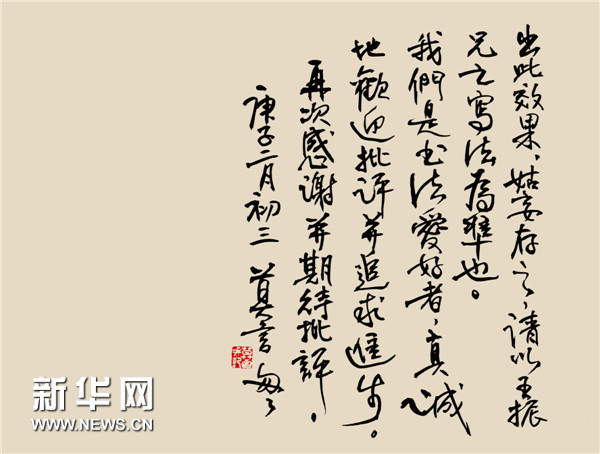 出此效果，姑妄存之，请以王振
兄之写法為準也。
我們是书法愛好者，真诚
地歡迎批评并追求進步。
再次感谢并期待批评。
庚子二月初三 莫言
新华网
WWW.NEWS.CN